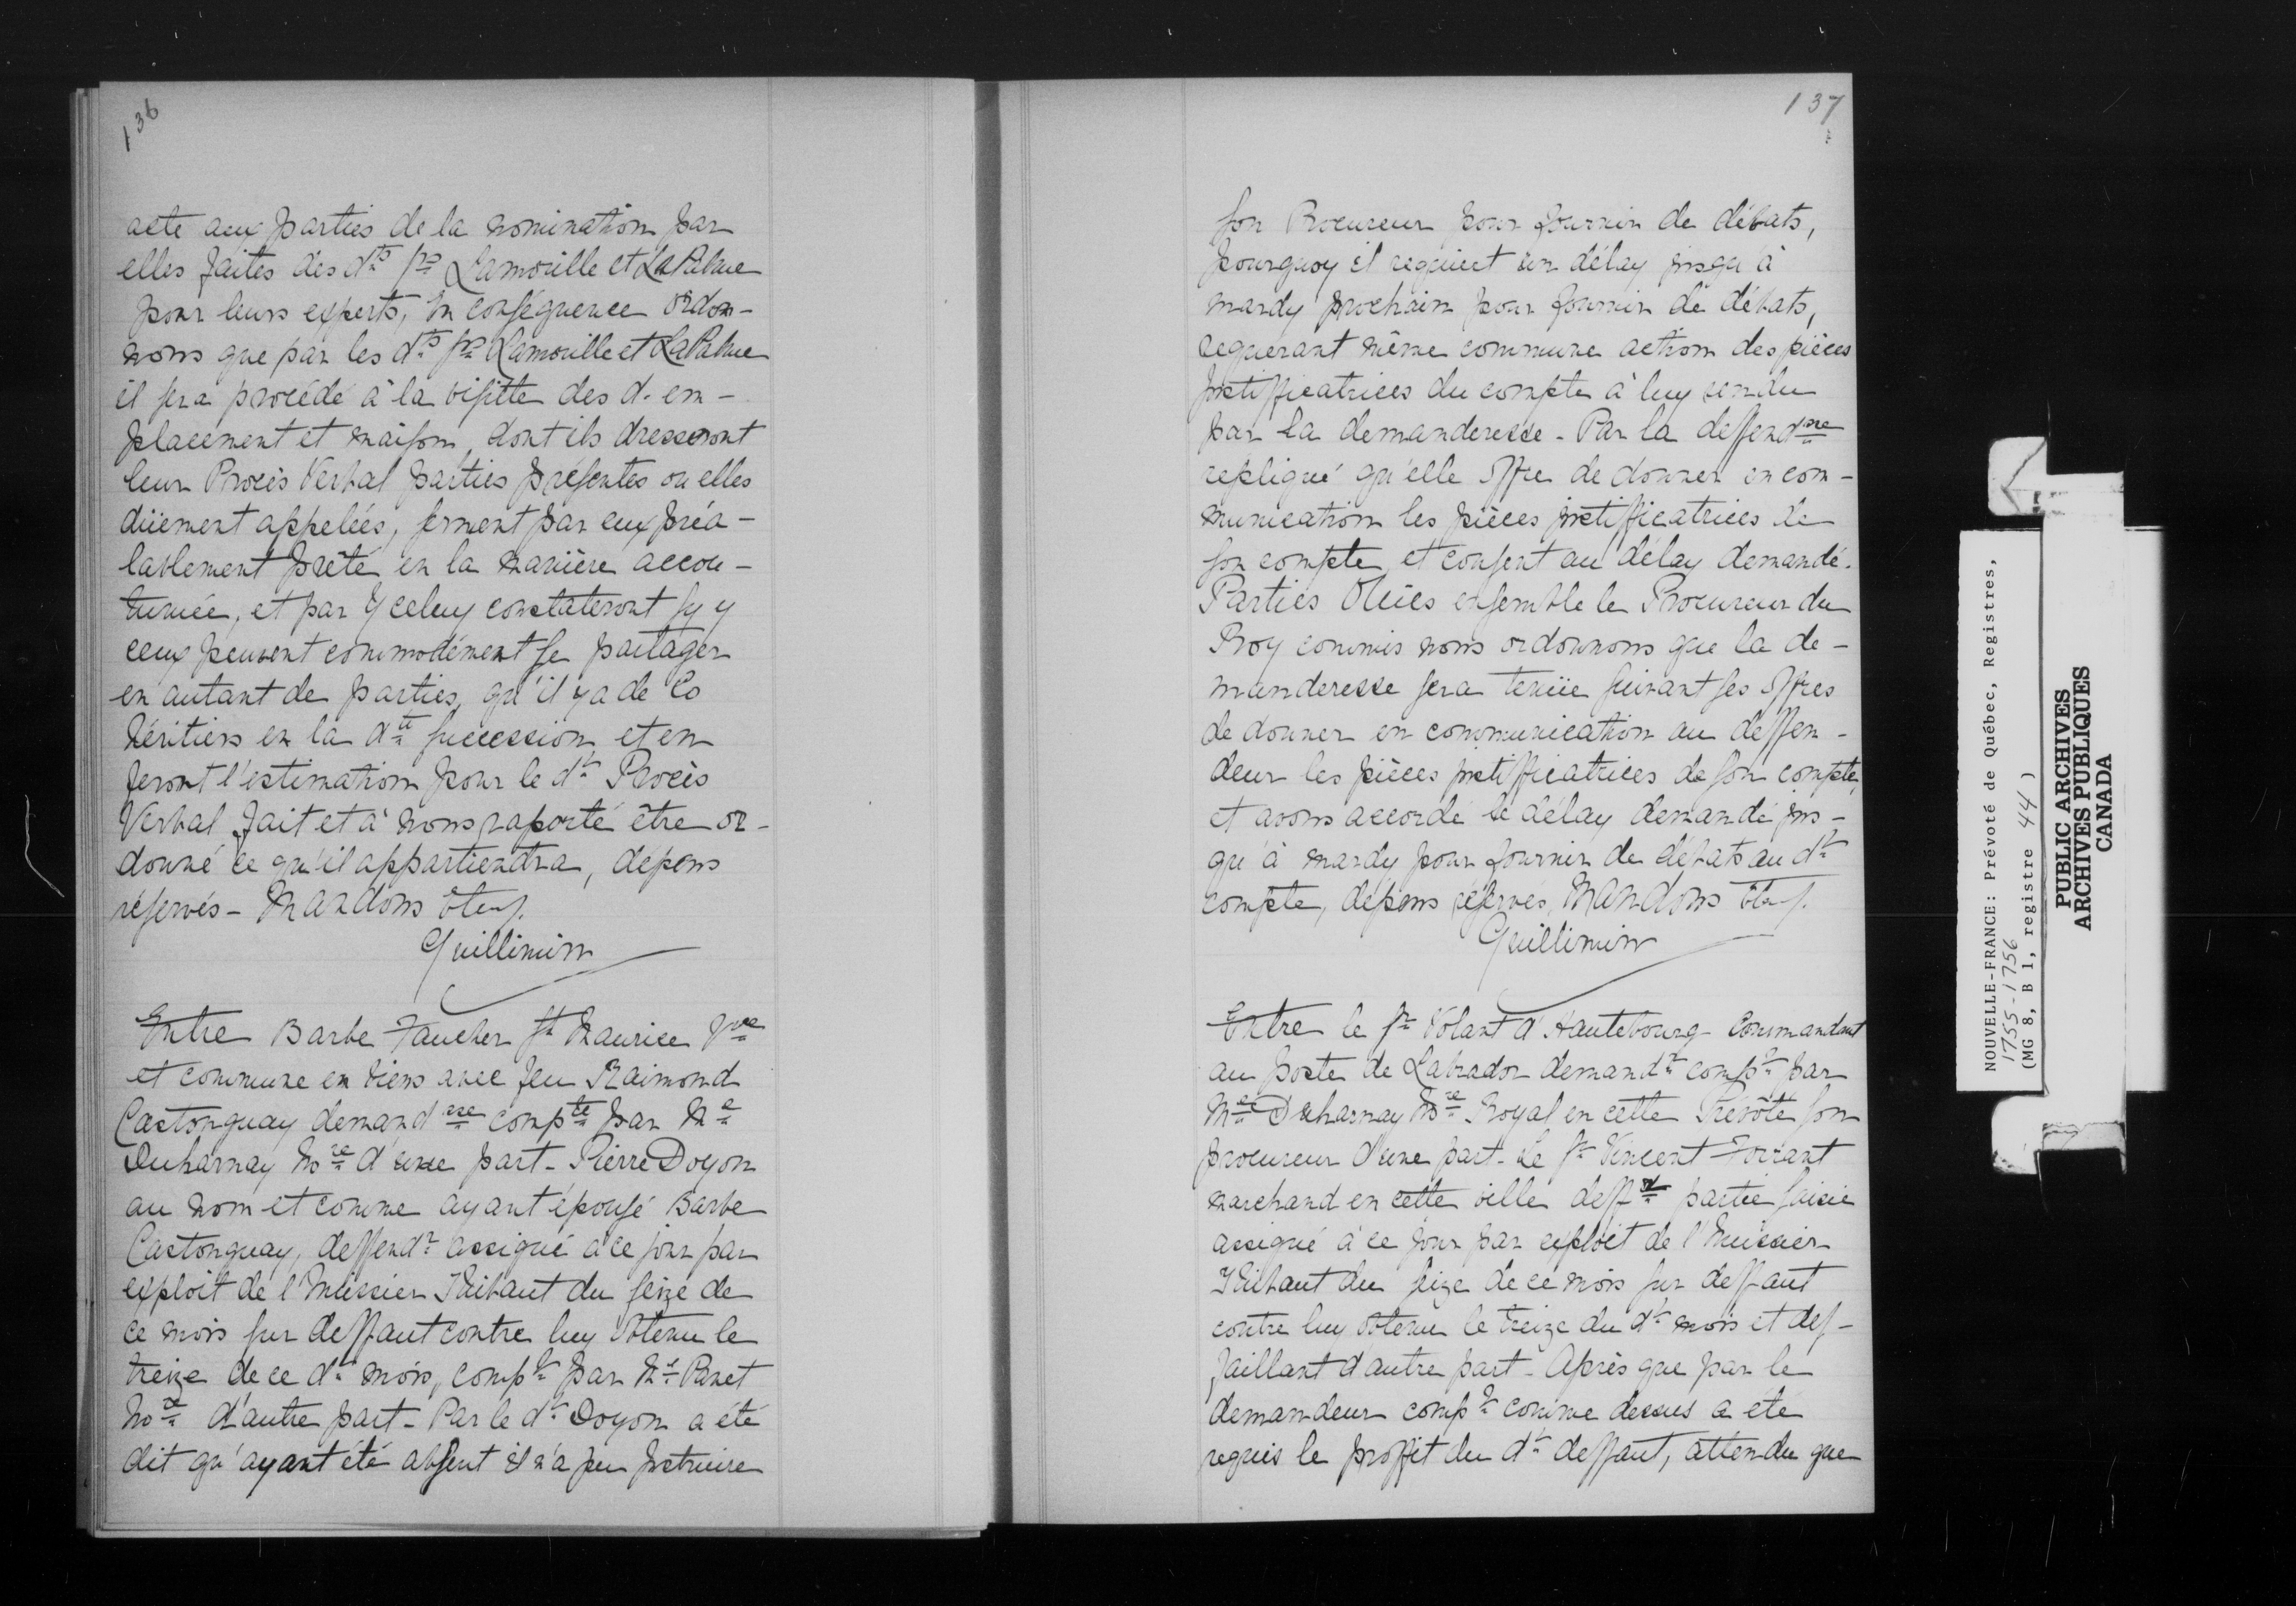 136
acte aux parties de la nomination par
elles faites des dts Srs Lamorille et LaPalme
pour leurs experts, en conséquence ordon-
nons que par les dts Srs Lamorille et LaPalme
il sera procédé à la visitte des d. em-
placement et maison, dont ils dresseront
leur Procès Verbal parties présentes ou elles
düement appelées, serment par eux préa-
lablement prêté en la manière accou-
tumée, et par Yceluy constateront sy y
ceux peuvent commodément se partager
en autant de parties, qu'il y a de Co
héritiers en la dte succession et en
feront l'estimation pour le dt Procès
Verbal fait et à nous raporté être or-
donné ce qu'il appartiendra, dépens
réservés - Mandons &c.
Guillimin
Entre Barbe Faucher St Maurice Vve
et commune en biens avec feu Raimond
Castonguay demandsse compte par Me
Decharnay Nore d'une part - Pierre Doyon
au nom et comme ayant épousé Barbe
Castonguay, deffendr assigné à ce jour par
exploit de l'huissier Thibaut du seize de
ce mois sur deffaut contre luy obtenu le
treize de ce dt mois, compt par Me Panet
Nore d'autre part - Par le dt Doyon a été
dit qu'ayant été absent il n'a peu instruire
137
son Procureur pour fournir de débats,
pourquoy il requiert un délay jusqu'à
mardy prochain pour fournir de débats,
requerant même commune action des pièces
justifficatrices du compte à luy rendu
par la demanderesse - Par la deffendsse
repliqué qu'elle offre de donner en com-
munication les pièces justifficatrices de
son compte, et consent au délay demandé.
Parties Oüies ensemble le Procureur du
Roy commis nous ordonnons que la de-
manderesse sera tenüe suivant ses offres
de donner en communication au deffen-
deur les pièces justifficatrices de son compte,
et avons accordé le délay demandé jus-
qu'à mardy pour fournir de débats au dt
compte, dépens réservés, Mandons &c.
Guillimin
Entre le Sr Volant d'Hautebourg Commandant
au poste de Labrador demandr compt par
Me Decharnay Nre Royal en cette Prévôté son
procureur d'une part - Le Sr Vincent Forrant
marchand en cette ville deffr partie saisie
assigné à ce jour par exploit de l'huissier
Thibaut du seize de ce mois sur deffaut
contre luy obtenu le treize du dt mois et def-
faillant d'autre part - Après que par le
demandeur compt comme dessus a été
requis le proffit du dt deffaut, attendu que
NOUVELLE-FRANCE: Prévôté de Québec, Registres,
1755-1756
(MG 8, B 1, registre 44)
PUBLIC ARCHIVES
ARCHIVES PUBLIQUES
CANADA